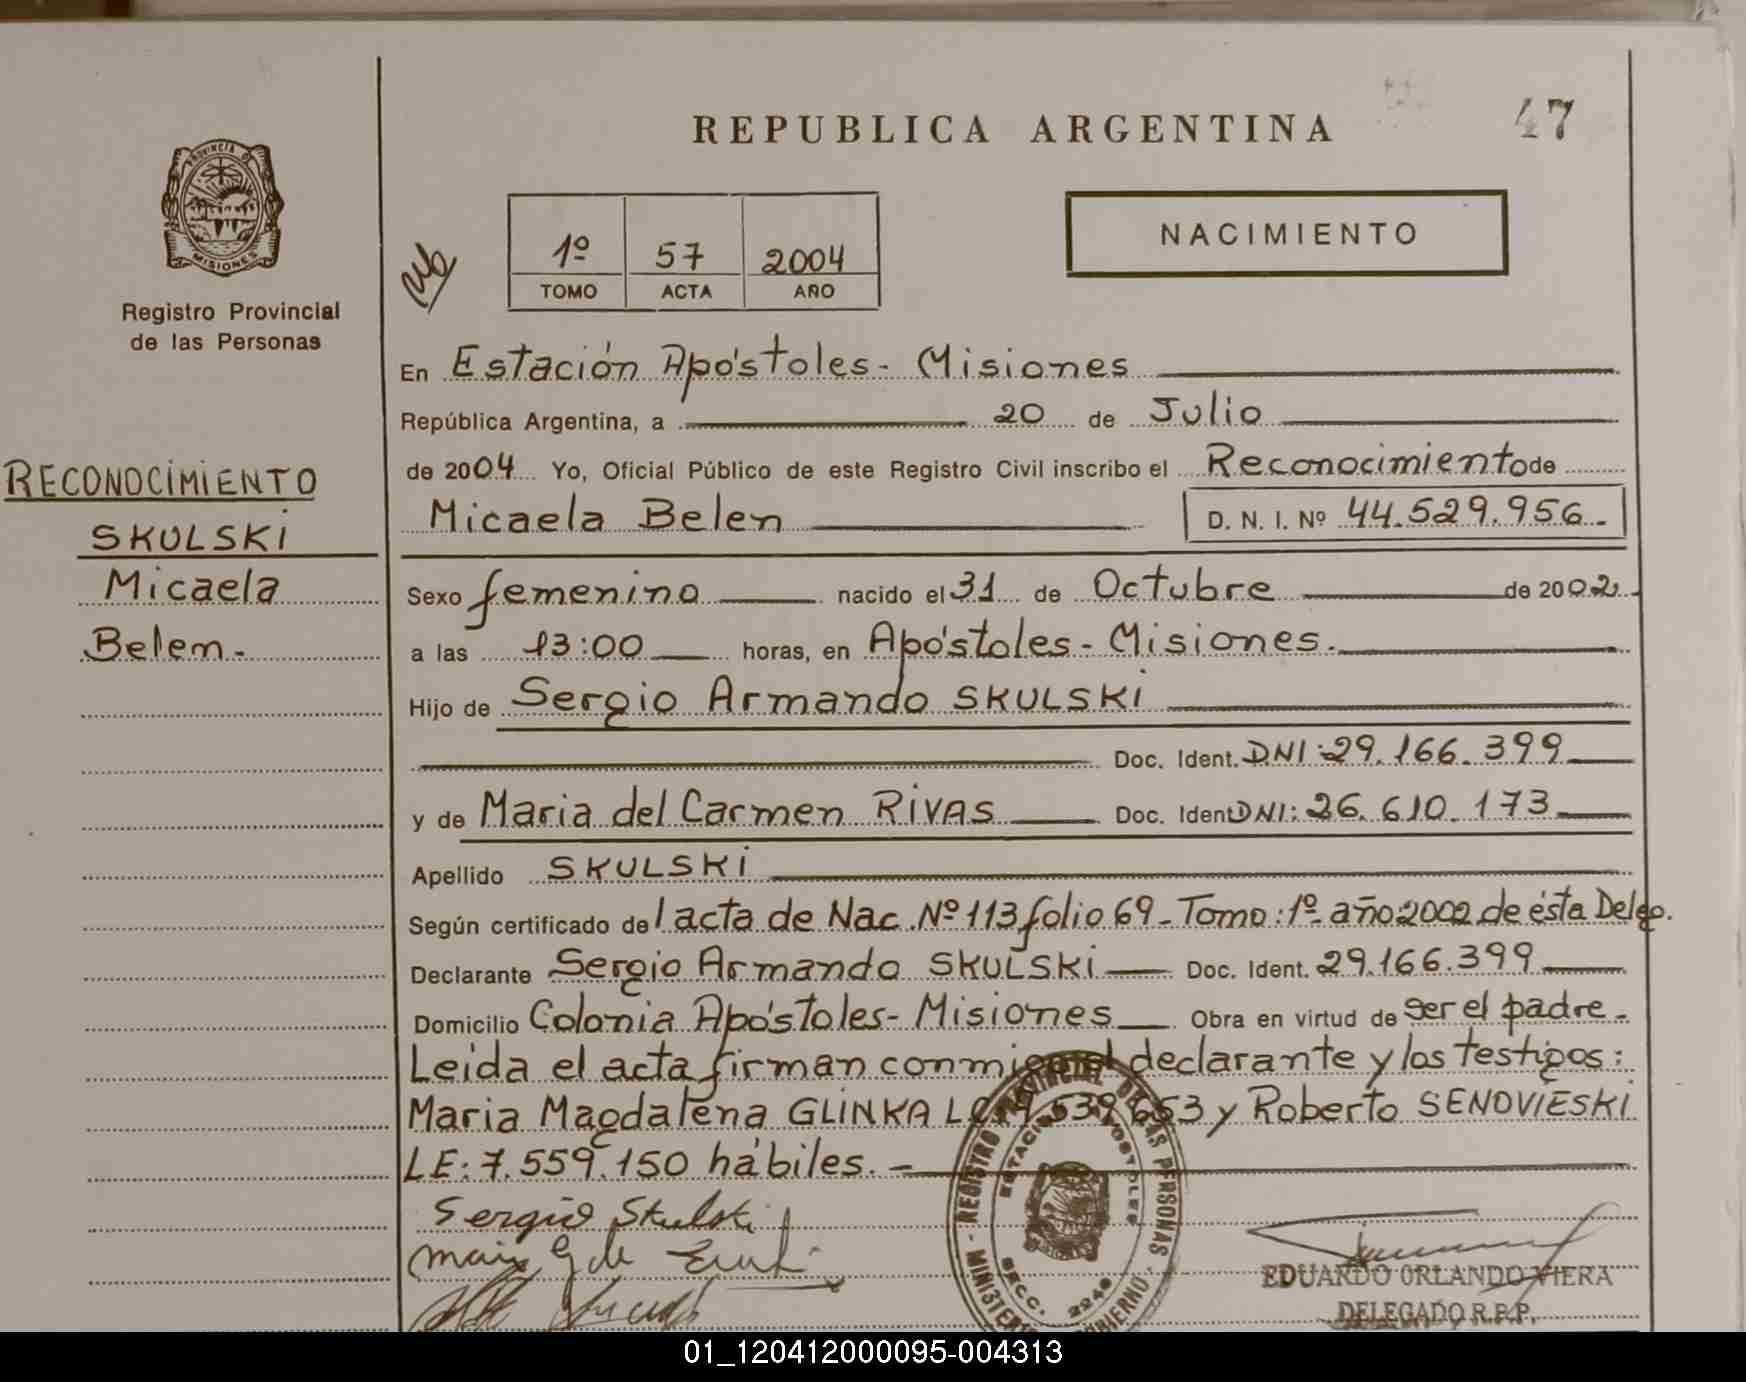 REPUBLICA ARGENTINA
47
PROVINCIA DE
MISIONES
Registro Provincial
de las Personas
1º 57 2004
TOMO ACTA AÑO
NACIMIENTO
En Estación Apóstoles - Misiones
República Argentina, a 20 de Julio
de 2004 Yo, Oficial Público de este Registro Civil inscribo el Reconocimiento de
Micaela Belen D. N. I. Nº 44.529.956.-
RECONOCIMIENTO
SKULSKI
Micaela
Belem.-
Sexo femenino nacido el 31 de Octubre de 2002.
a las 13:00 horas, en Apóstoles - Misiones.
Hijo de Sergio Armando SKULSKI
Doc. Ident. DNI: 29.166.399
y de Maria del Carmen RIVAS Doc. Ident DNI: 26.610.173
Apellido SKULSKI
Según certificado del acta de Nac. Nº 113 folio 69 - Tomo: 1º año 2002 de ésta Delgo.
Declarante Sergio Armando SKULSKI Doc. Ident. 29.166.399
Domicilio Colonia Apóstoles - Misiones Obra en virtud de ser el padre.-
Leida el acta firman conmigo el declarante y los testigos:
Maria Magdalena GLINKA LC: 4.539.653 y Roberto SENOVIESKI
LE: 7.559.150 hábiles.-
Sergio Skulski
REGISTRO PROVINCIAL DE LAS PERSONAS
ESTACION APOSTOLES
SECC. 2248
EDUARDO ORLANDO VIERA
DELEGADO R.P.P.
01_120412000095-004313